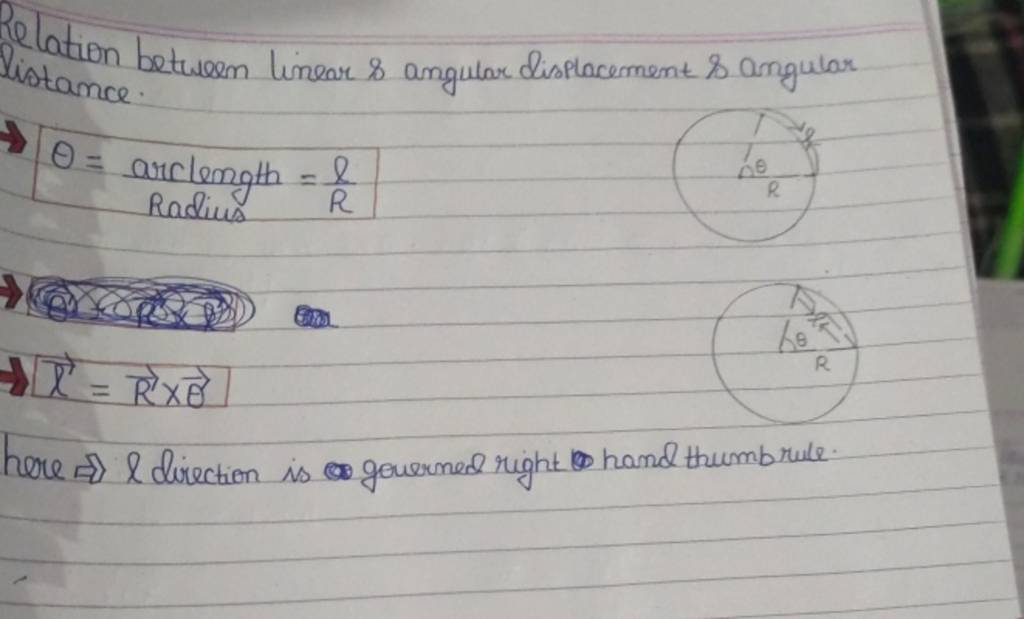 Relation between linear & angular displacement & angular
distance.
→ θ = arc length / Radius = l / R
θ
R
→
→ l⃗ = R⃗ × θ⃗
θ
R
here ⇒ l direction is governed right hand thumb rule.